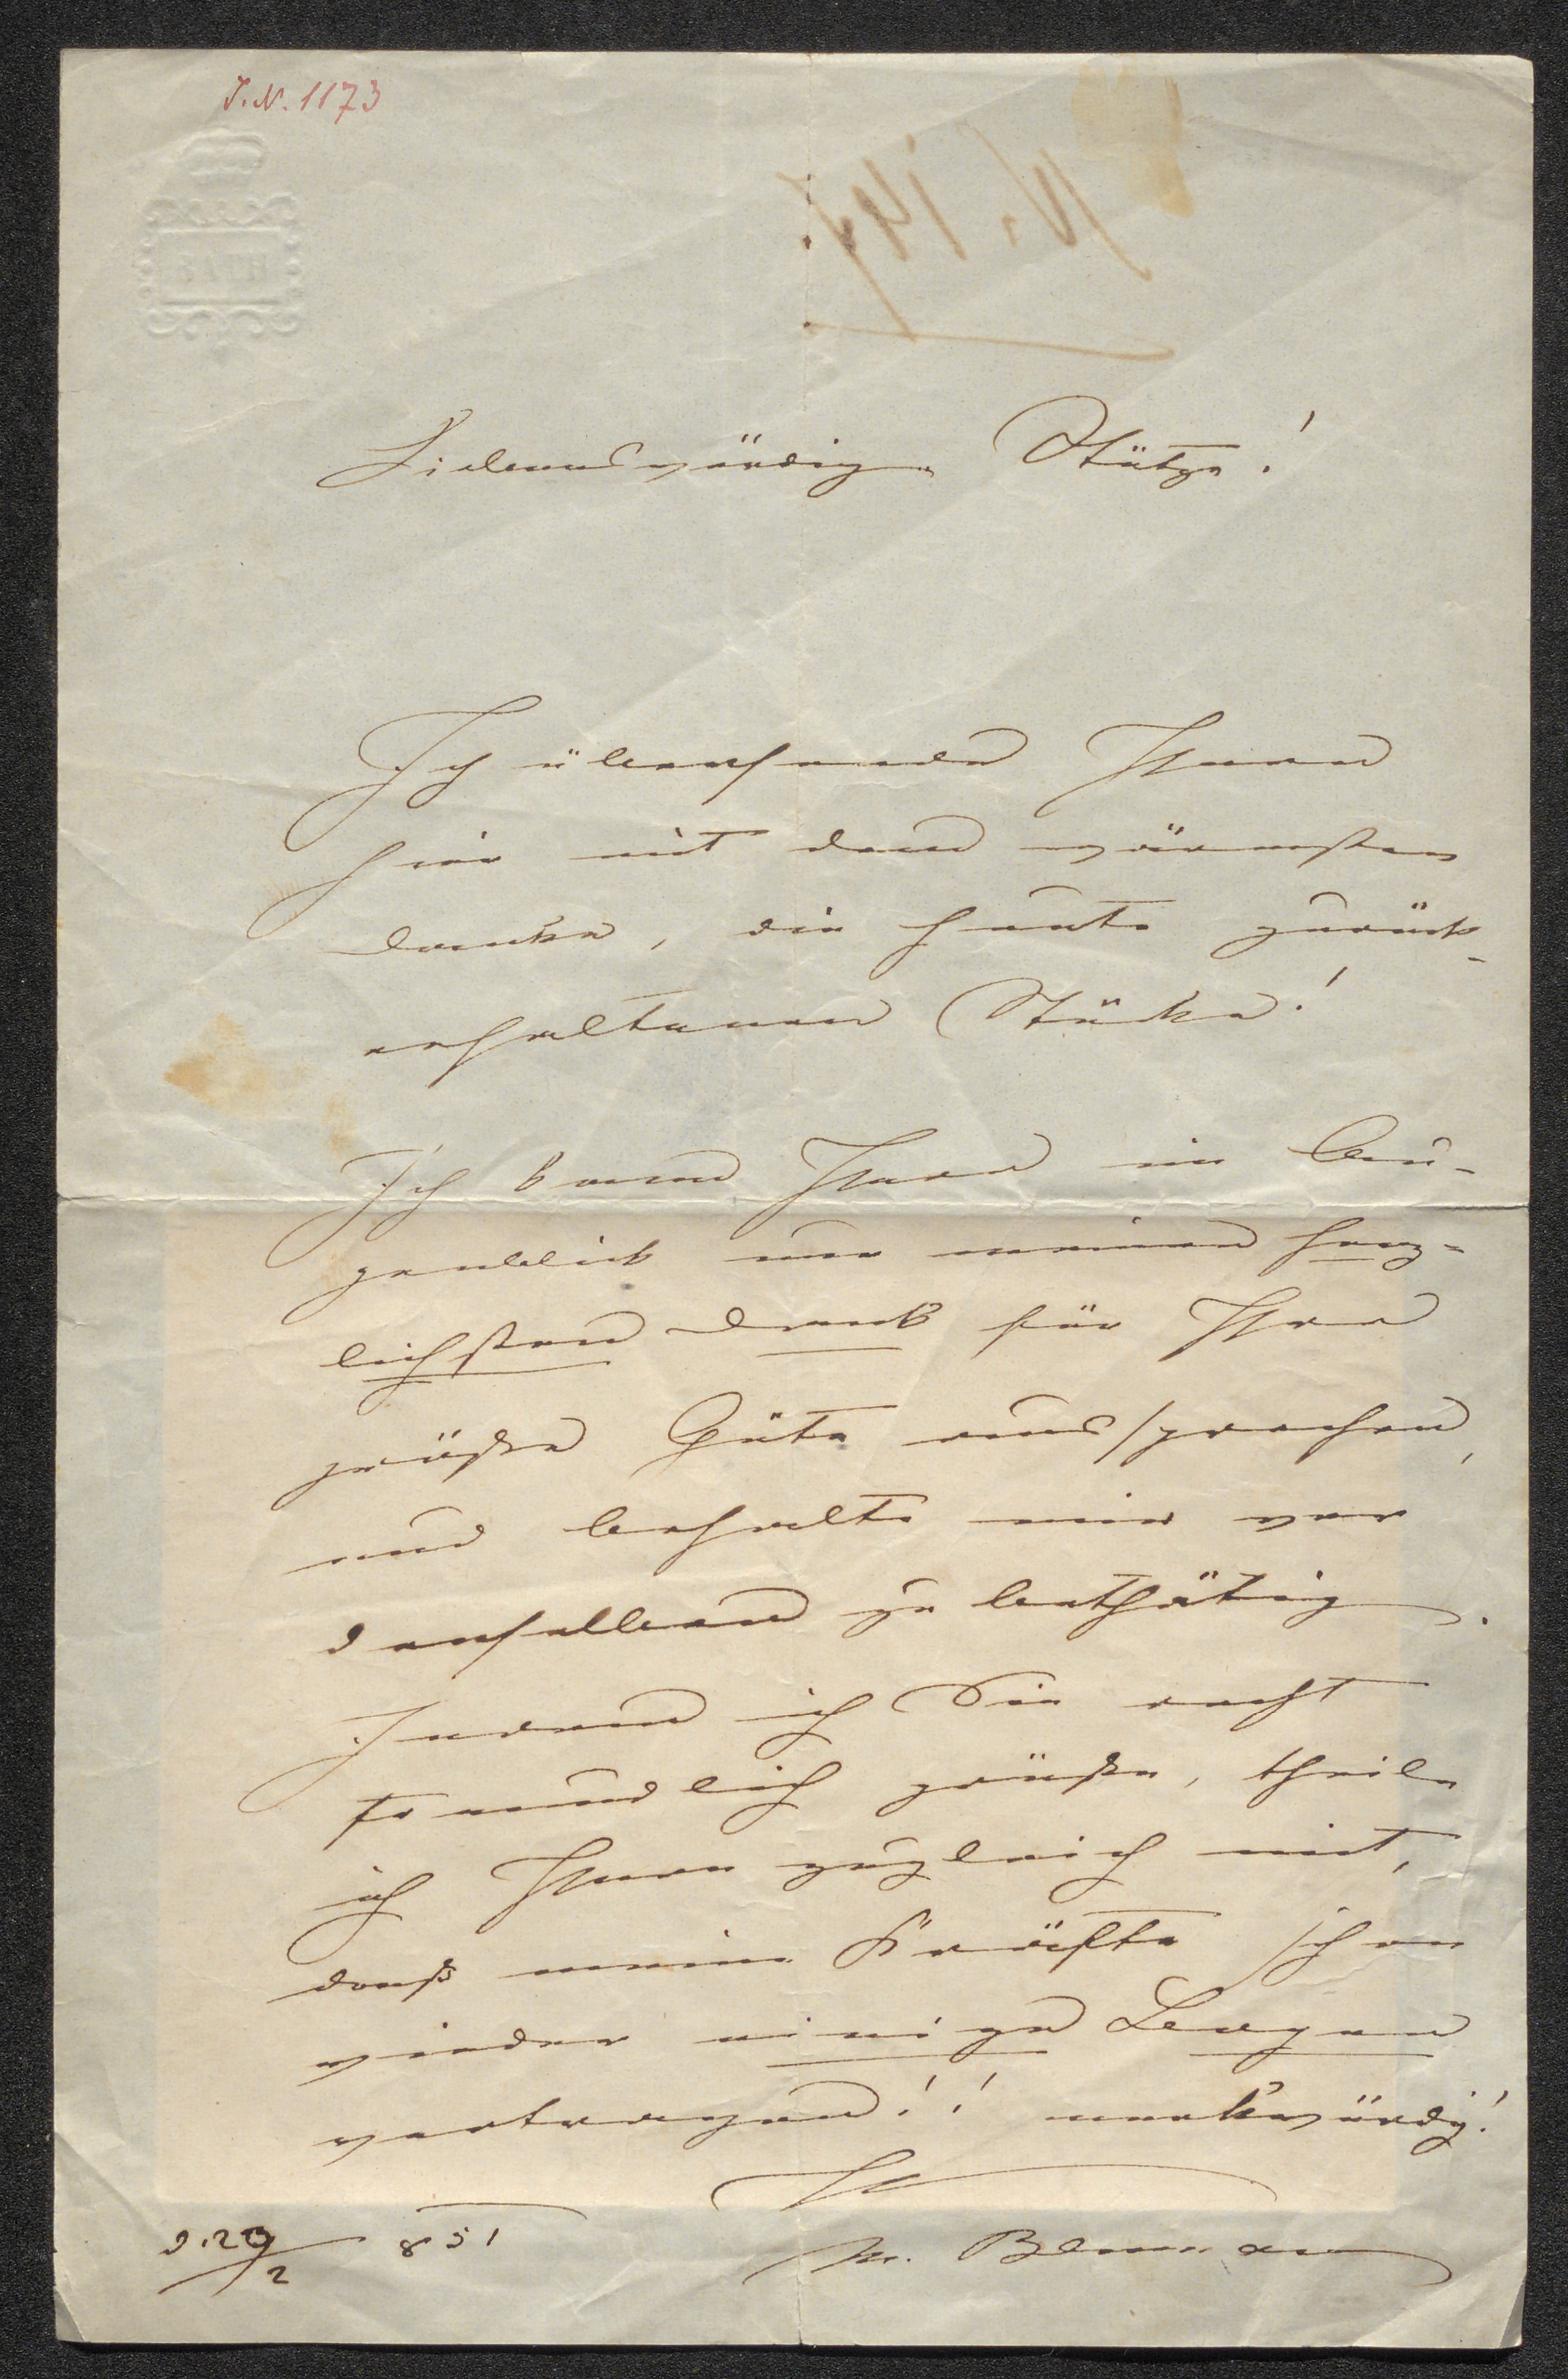 I.N. 1173
BATH
N. 147.
Liebenswürdige Stütze!
Ich übersende Ihnen
hier mit dem wärmsten
Danke, die heute zurück-
erhaltenen Stücke!
Ich kann Ihnen im Au-
genblick nur meinen herz-
lichsten Dank für Ihre
große Güte aussprechen,
und behalte mir vor
denselben zu bethätigen.
Indem ich Sie recht
freundlich grüße, theile
ich Ihnen zugleich mit,
daß meine Kräfte schon
wieder einige
vertragen!! merkwürdig!
Ihr
d. 20/2 851
M.